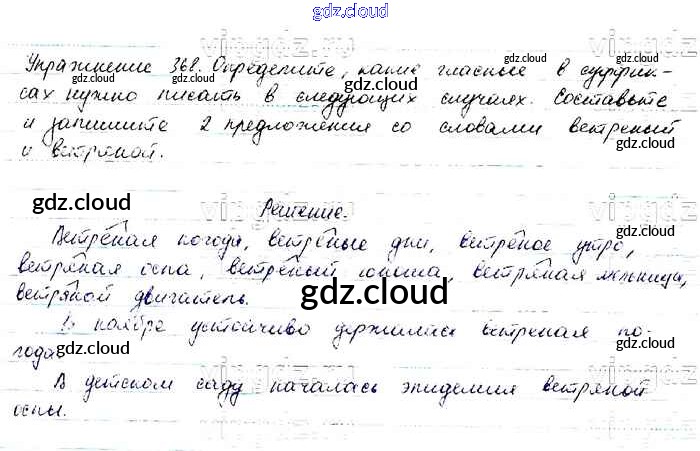 gdz.cloud
Упражнение 368. Определите, какие гласные в суффик-
сах нужно писать в следующих случаях. Составьте
и запишите 2 предложения со словами ветреный
и ветряной.
Решение.
Ветреная погода, ветреные дни, ветреное утро,
ветряная оспа, ветреный юноша, ветряная мельница,
ветряной двигатель.
В ноябре устойчиво держалась ветреная по-
года.
В детском саду началась эпидемия ветряной
оспы.